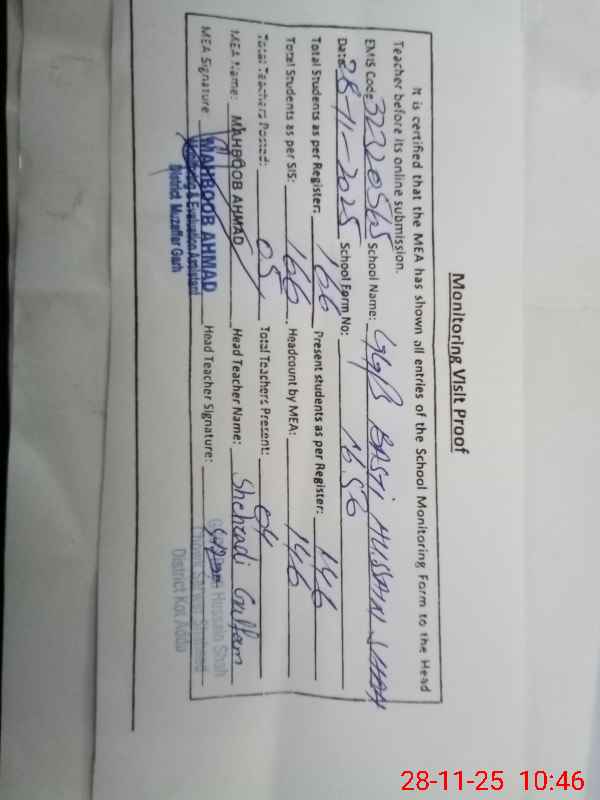 Monitoring Visit Proof
It is certified that the MEA has shown all entries of the School Monitoring Form to the Head
Teacher before its online submission.
EMIS Code: 32320565 School Name: BASTI HUSSAIN SHAH
Date: 28-11-2025 School Form No: 1656
Total Students as per Register: 166 Present students as per Register: 146
Total Students as per SIS: 166 Headcount by MEA: 146
Total Teachers Posted: 05 Total Teachers Present: 04
MEA Name: MAHBOOB AHMAD Head Teacher Name: Shehzadi Gulfam
MEA Signature: Head Teacher Signature:
MAHBOOB AHMAD
Monitoring & Evaluation Assistant
District Muzaffar Garh
Hussain Shah
District Kot Addu
28-11-25 10:46